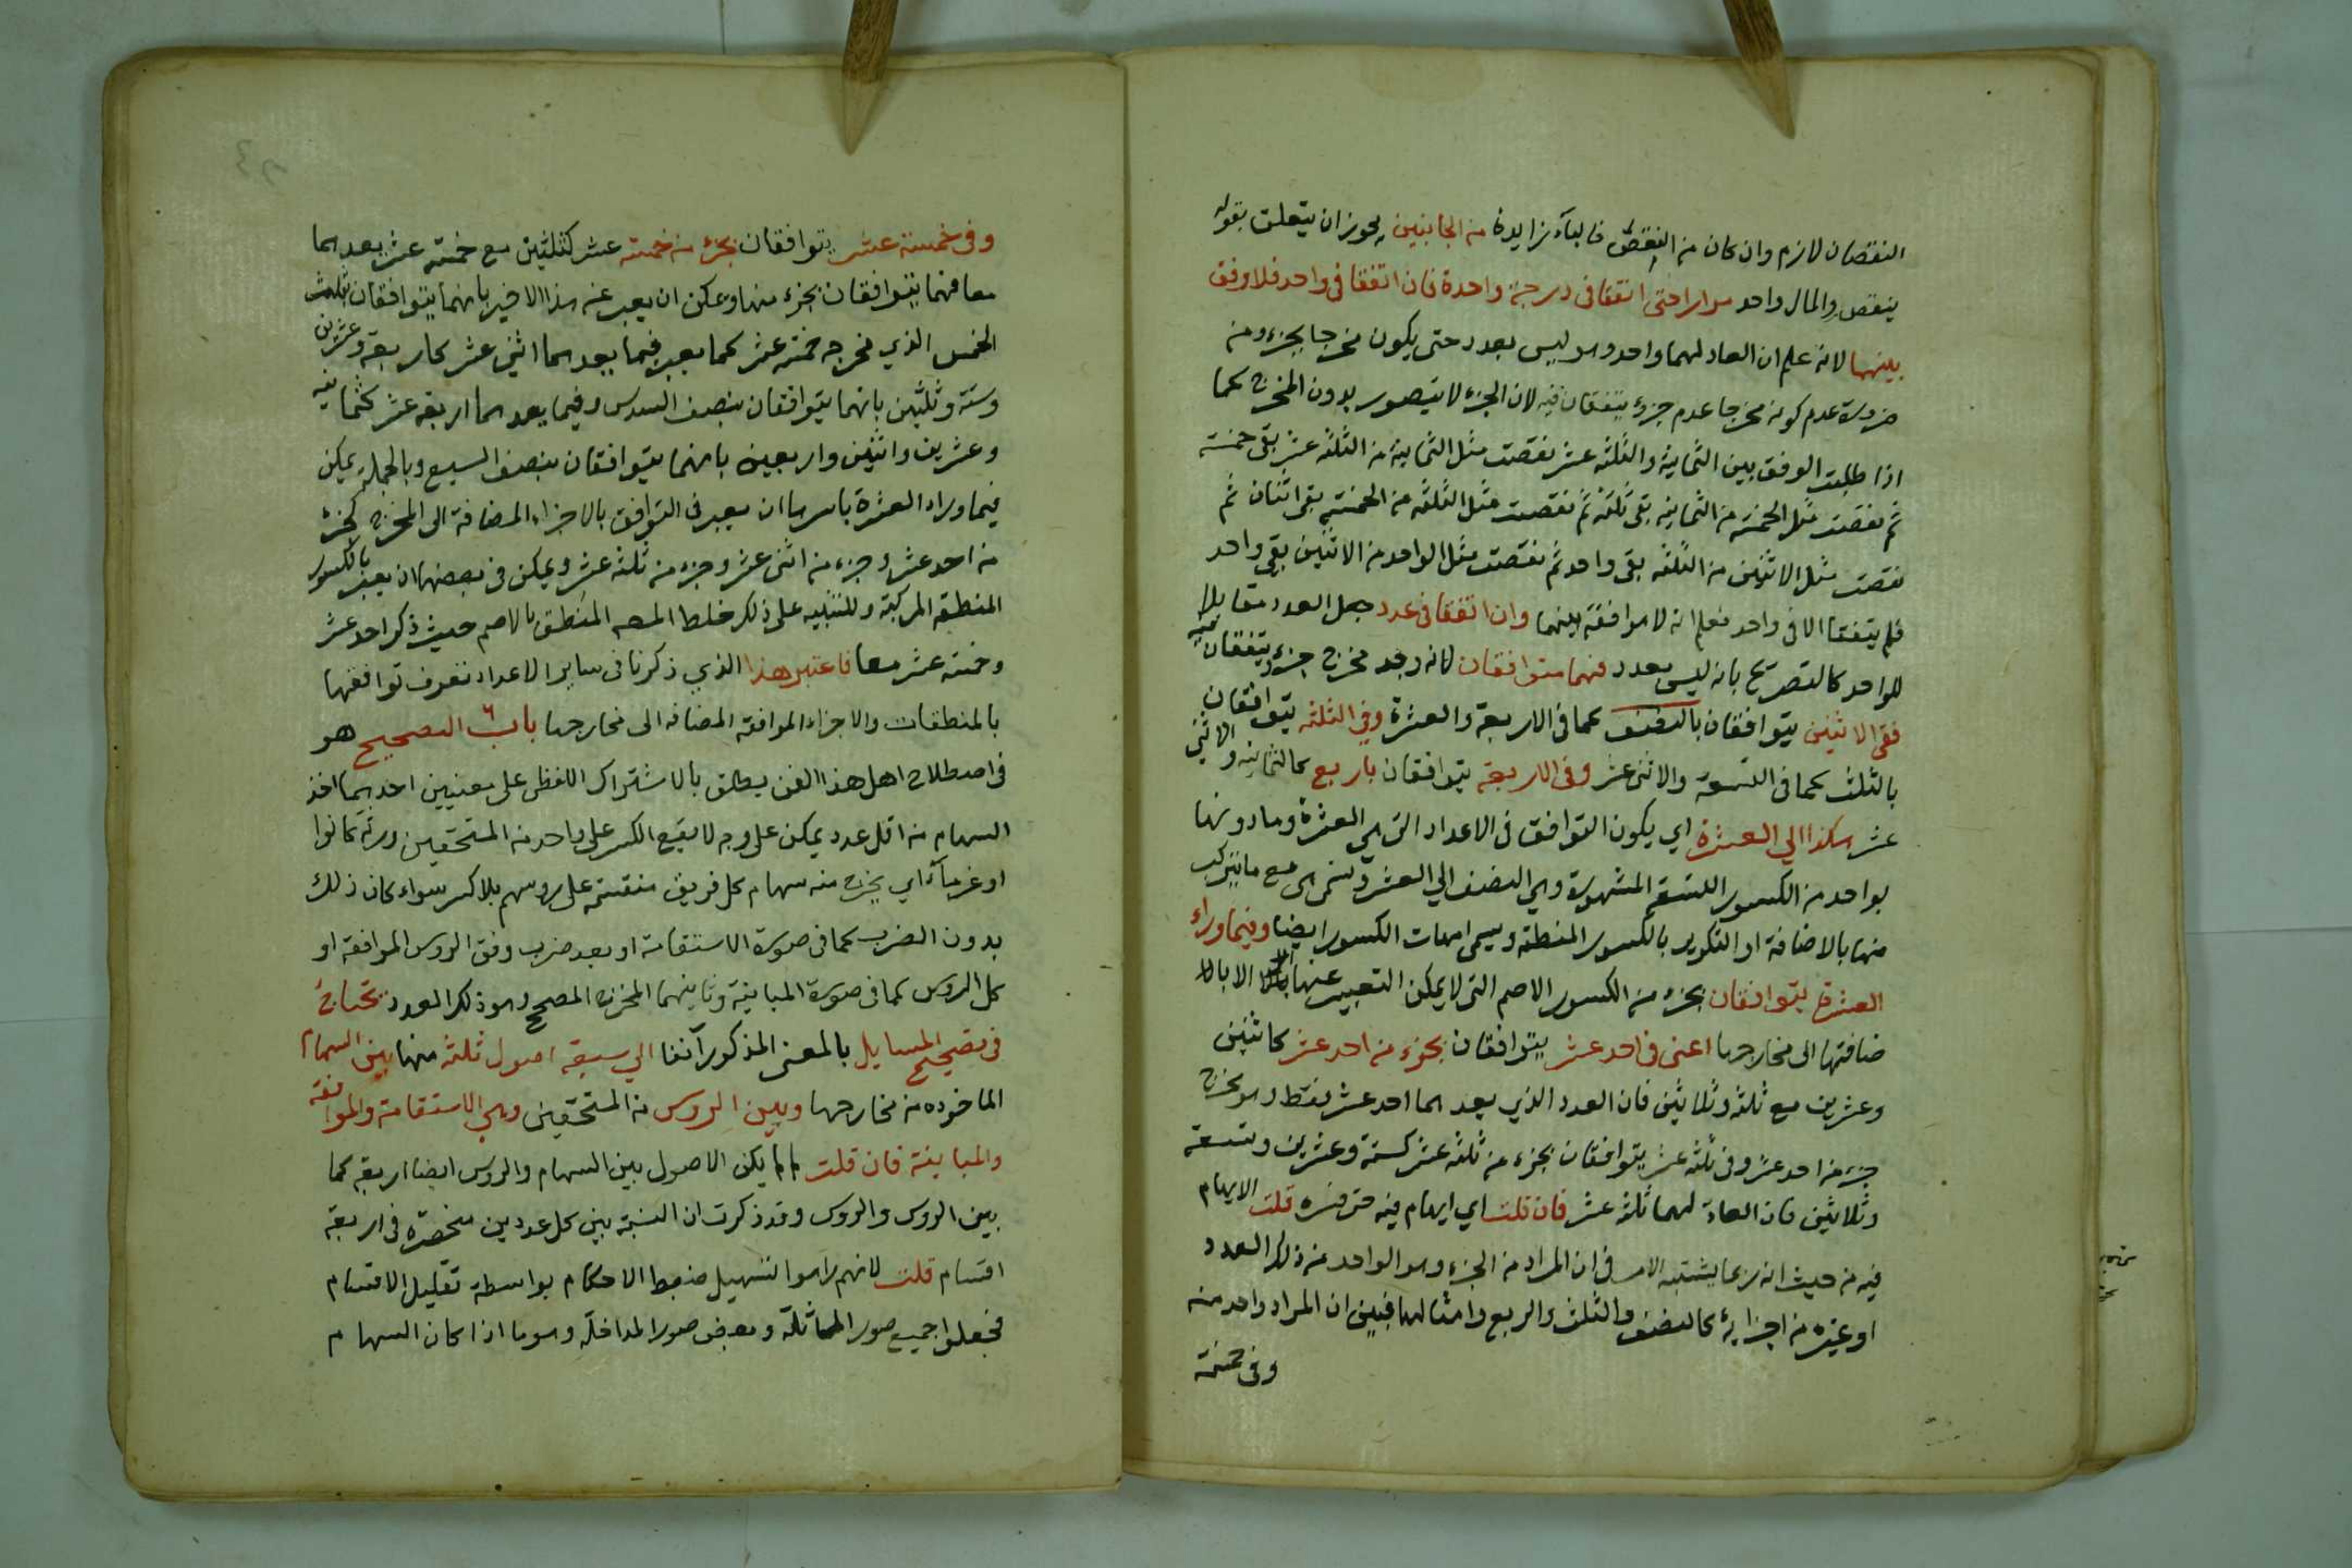 النقصان لازم وان كان من النقض فالباء زايدة من الجانبين يجوز ان يتعلق بقوله
ينقص والمال واحد مرارا حتى اتفقا في درجة واحدة فان اتفقا في واحد فلا وفق
بينهما لانه علم ان العاد لهما واحد وهو ليس بعدد حتى يكون مخرجا بجزء ومن
ضرورة عدم كونه مخرجا عدم جزء يتفقان فيه لان الجزء لا يتصور بدون المخرج كما
اذا طلبت الوفق بين الثمانية والثلثه عشر نقصت مثل الثمانية من الثلثه عشر بقى خمسة
ثم نقصت مثل الخمسة من الثمانيه بقى ثلثه ثم نقصت مثل الثلثه من الخمسة بقى اثنان ثم
نقصت مثل الاثنين من الثلثه بقى واحد ثم نقصت مثل الواحد من الاثنين بقى واحد
فلم يتفقا الا في واحد فعلم انه لا موافقة بينهما وان اتفقا في عدد جعل العدد مقابلا
للواحد كالتصريح بانه ليس بعدد فهما متوافقان لانه وجد مخرج جزء يتفقان فيه
ففي الاثنين يتوافقان بالنصف كما في الاربعة والعشرة وفي الثلثه يتوافقان
بالثلث كما في التسعة والاثنى عشر وفي الاربعة يتوافقان بالربع كالثمانيه والاثنى
عشر هكذا الي العشرة اي يكون التوافق في الاعداد التى هي العشرة وما دونها
بواحد من الكسور التسعة المشهورة وهي النصف الي العشر وتسمى هى مع ما يتركب
منها بالاضافة او التكرير بالكسور المنطقة ويسمى امهات الكسور ايضا وفيما وراء
العشرة يتوافقان بجزء من الكسور الاصم التى لا يمكن التعبير عنها الا بالا
ضافتها الى مخارجها اعنى في احد عشر يتوافقان بجزء من احد عشر كاثنين
وعشرين مع ثلثه وثلاثين فان العدد الذي يعدهما احد عشر فقط وهو مخرج
جزء من احد عشر وفي ثلثه عشر يتوافقان بجزء من ثلثه عشر كستة وعشرين وتسعة
وثلاثين فان العاد لهما ثلثه عشر فان قلت اي ابهام فيه حتى فسره قلت الابهام
فيه من حيث انه ربما يشتبه الامر في ان المراد من الجزء وهو الواحد من ذلك العدد
او غيره من اجزايه كالنصف والثلث والربع وامثالها فبين ان المراد واحد منه
وفى خمسة
وفي خمسة عشر يتوافقان بجزء من خمسة عشر كثلثين مع خمسة عشر بعدهما
معا فهما يتوافقان بجزء منها ويمكن ان يعبر عنه هذا الاخير بانهما يتوافقان بثلث
الخمس الذي مخرجه خمسة عشر كما يعبر فيما يعدهما اثنى عشر كاربعة وعشرين
وستة وثلثين بانهما يتوافقان بنصف السدس وفيما يعدهما اربعة عشر كثمانيه
وعشرين واثنين واربعين بانهما يتوافقان بنصف السبع وبالجملة يمكن
فيما وراء العشرة باسرها ان يعبر في التوافق بالاجزاء المضافة الى المخرج كجزء
من احد عشر وجزء من اثنى عشر وجزء من ثلثه عشر ويمكن في بعضها ان يعبر بالكسور
المنطقه المركبة وللتنبيه على ذلك خلط المصـ المنطق بالاصم حيث ذكر احد عشر
وخمسة عشر معا فاعتبر هذا الذي ذكرنا في ساير الاعداد تعرف توافقها
بالمنطقات والاجزاء الموافقه المضافه الى مخارجها باب التصحيح هو
في اصطلاح اهل هذا الفن يطلق بالاشتراك اللفظى على معنيين احدهما اخذ
السهام من اقل عدد يمكن على وجه لا يقع الكسر على واحد من المستحقين ورثة كانوا
او غرماء اي يخرج منه سهام كل فريق منقسمة على روسهم بلا كسر سواء كان ذلك
بدون الضرب كما في صورة الاستقامة او بعد ضرب وفق الروس الموافقه او
كل الروس كما في صورة المباينة وثانيهما المخرج المصحح وهو ذلك العدد تحتاج
في تصحيح المسايل بالمعنى المذكور آنفا الي سبعة اصول ثلثة منها بين السهام
الماخوذه من مخارجها وبين الروس من المستحقين وهي الاستقامة والموافقة
والمباينة فان قلت لم لم يكن الاصول بين السهام والروس ايضا اربعة كما
بين الروس والروس وقد ذكرت ان النسبة بين كل عددين منحصرة في اربعة
اقسام قلت لانهم راموا تسهيل ضبط الاحكام بواسطة تقليل الاقسام
فجعلوا جميع صور المماثلة وبعض صور المداخلة وهو ما اذا كان السهام